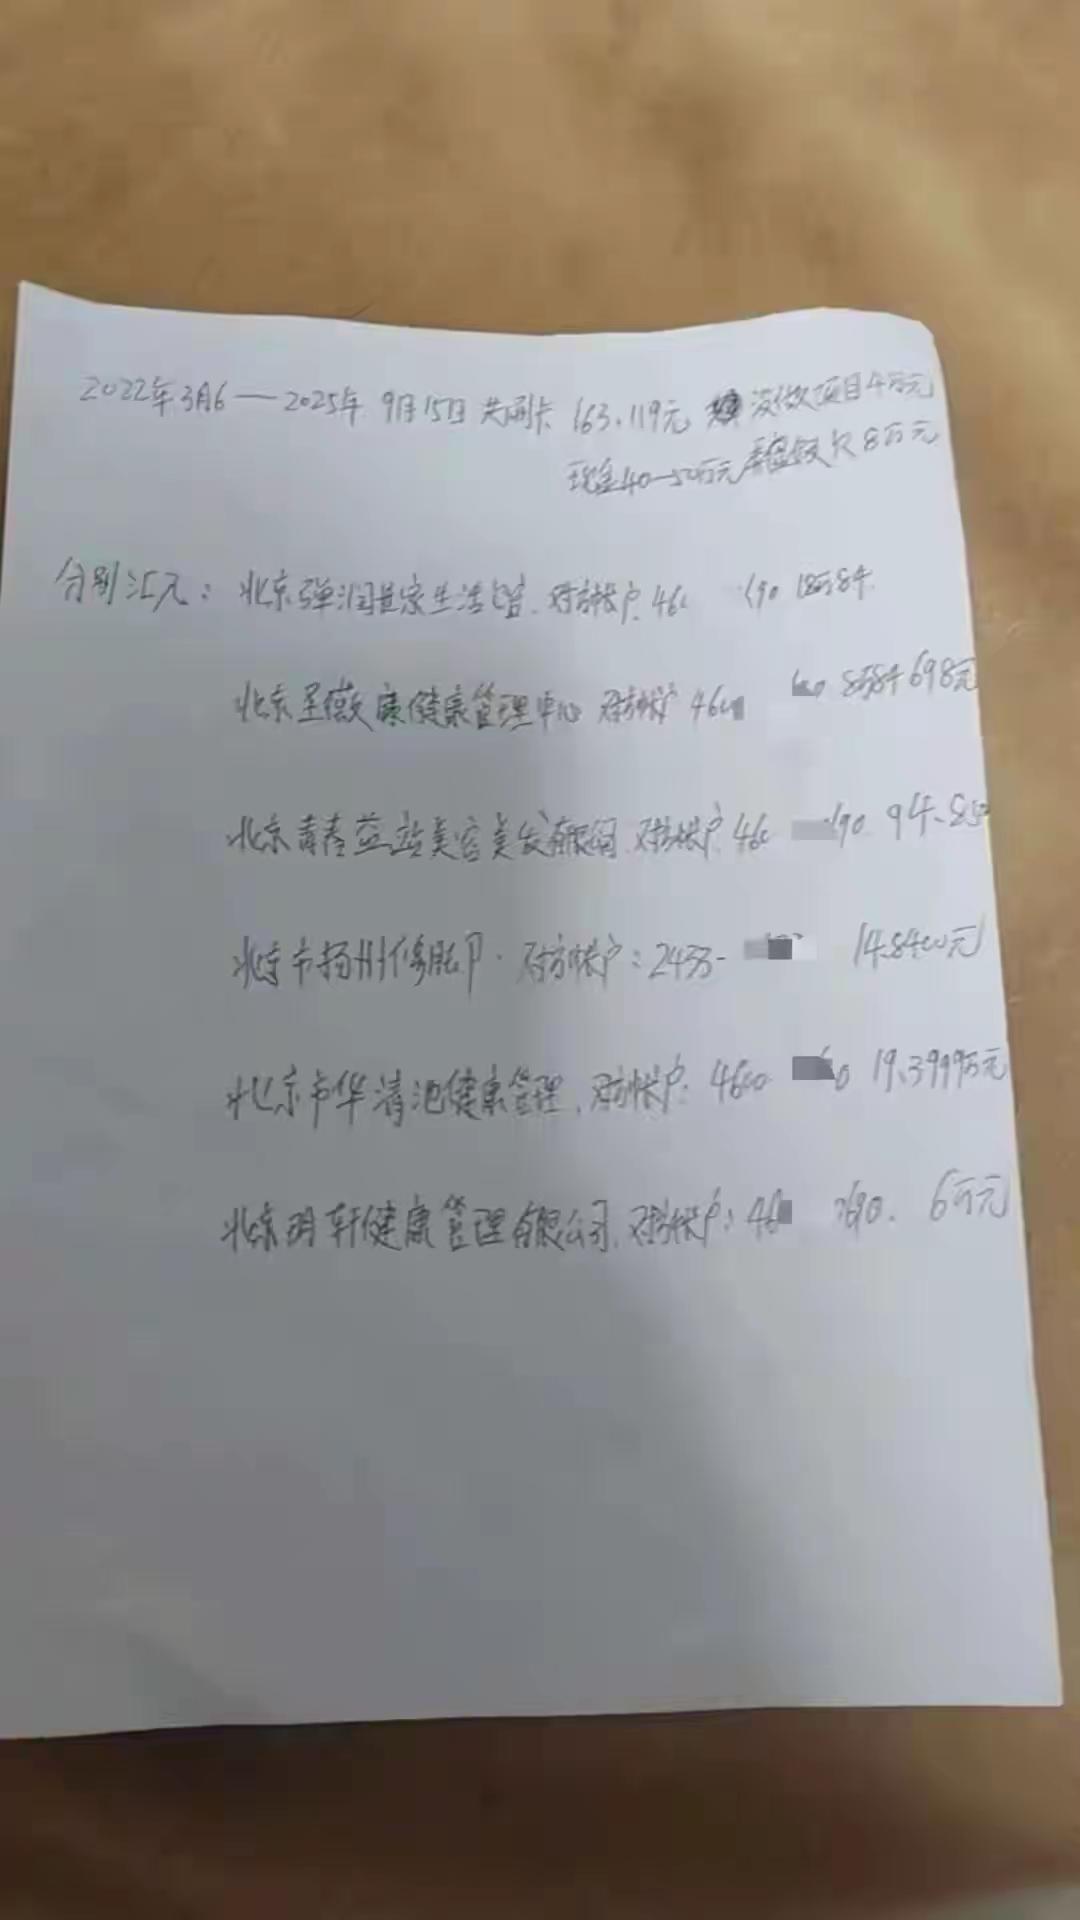 2022年3月6—2025年 9月15日共刷卡 163.119元 没做项目4万元
现金40—50万元 欠8万元
分别汇入: 北京 润世家生活馆. 对方帐户. 46 190
北京圣薇康健康管理中心 对方帐户 460 698元
北京青春益站美容美发有限公司. 对方帐户. 46 190. 94.85
北京市扬州修脚 . 对方帐户: 14.8400元
北京市华清池健康管理. 对方帐户: 4600 0 19.3999万元
北京玥轩健康管理有限公司. 对方帐户: 46 690. 6万元